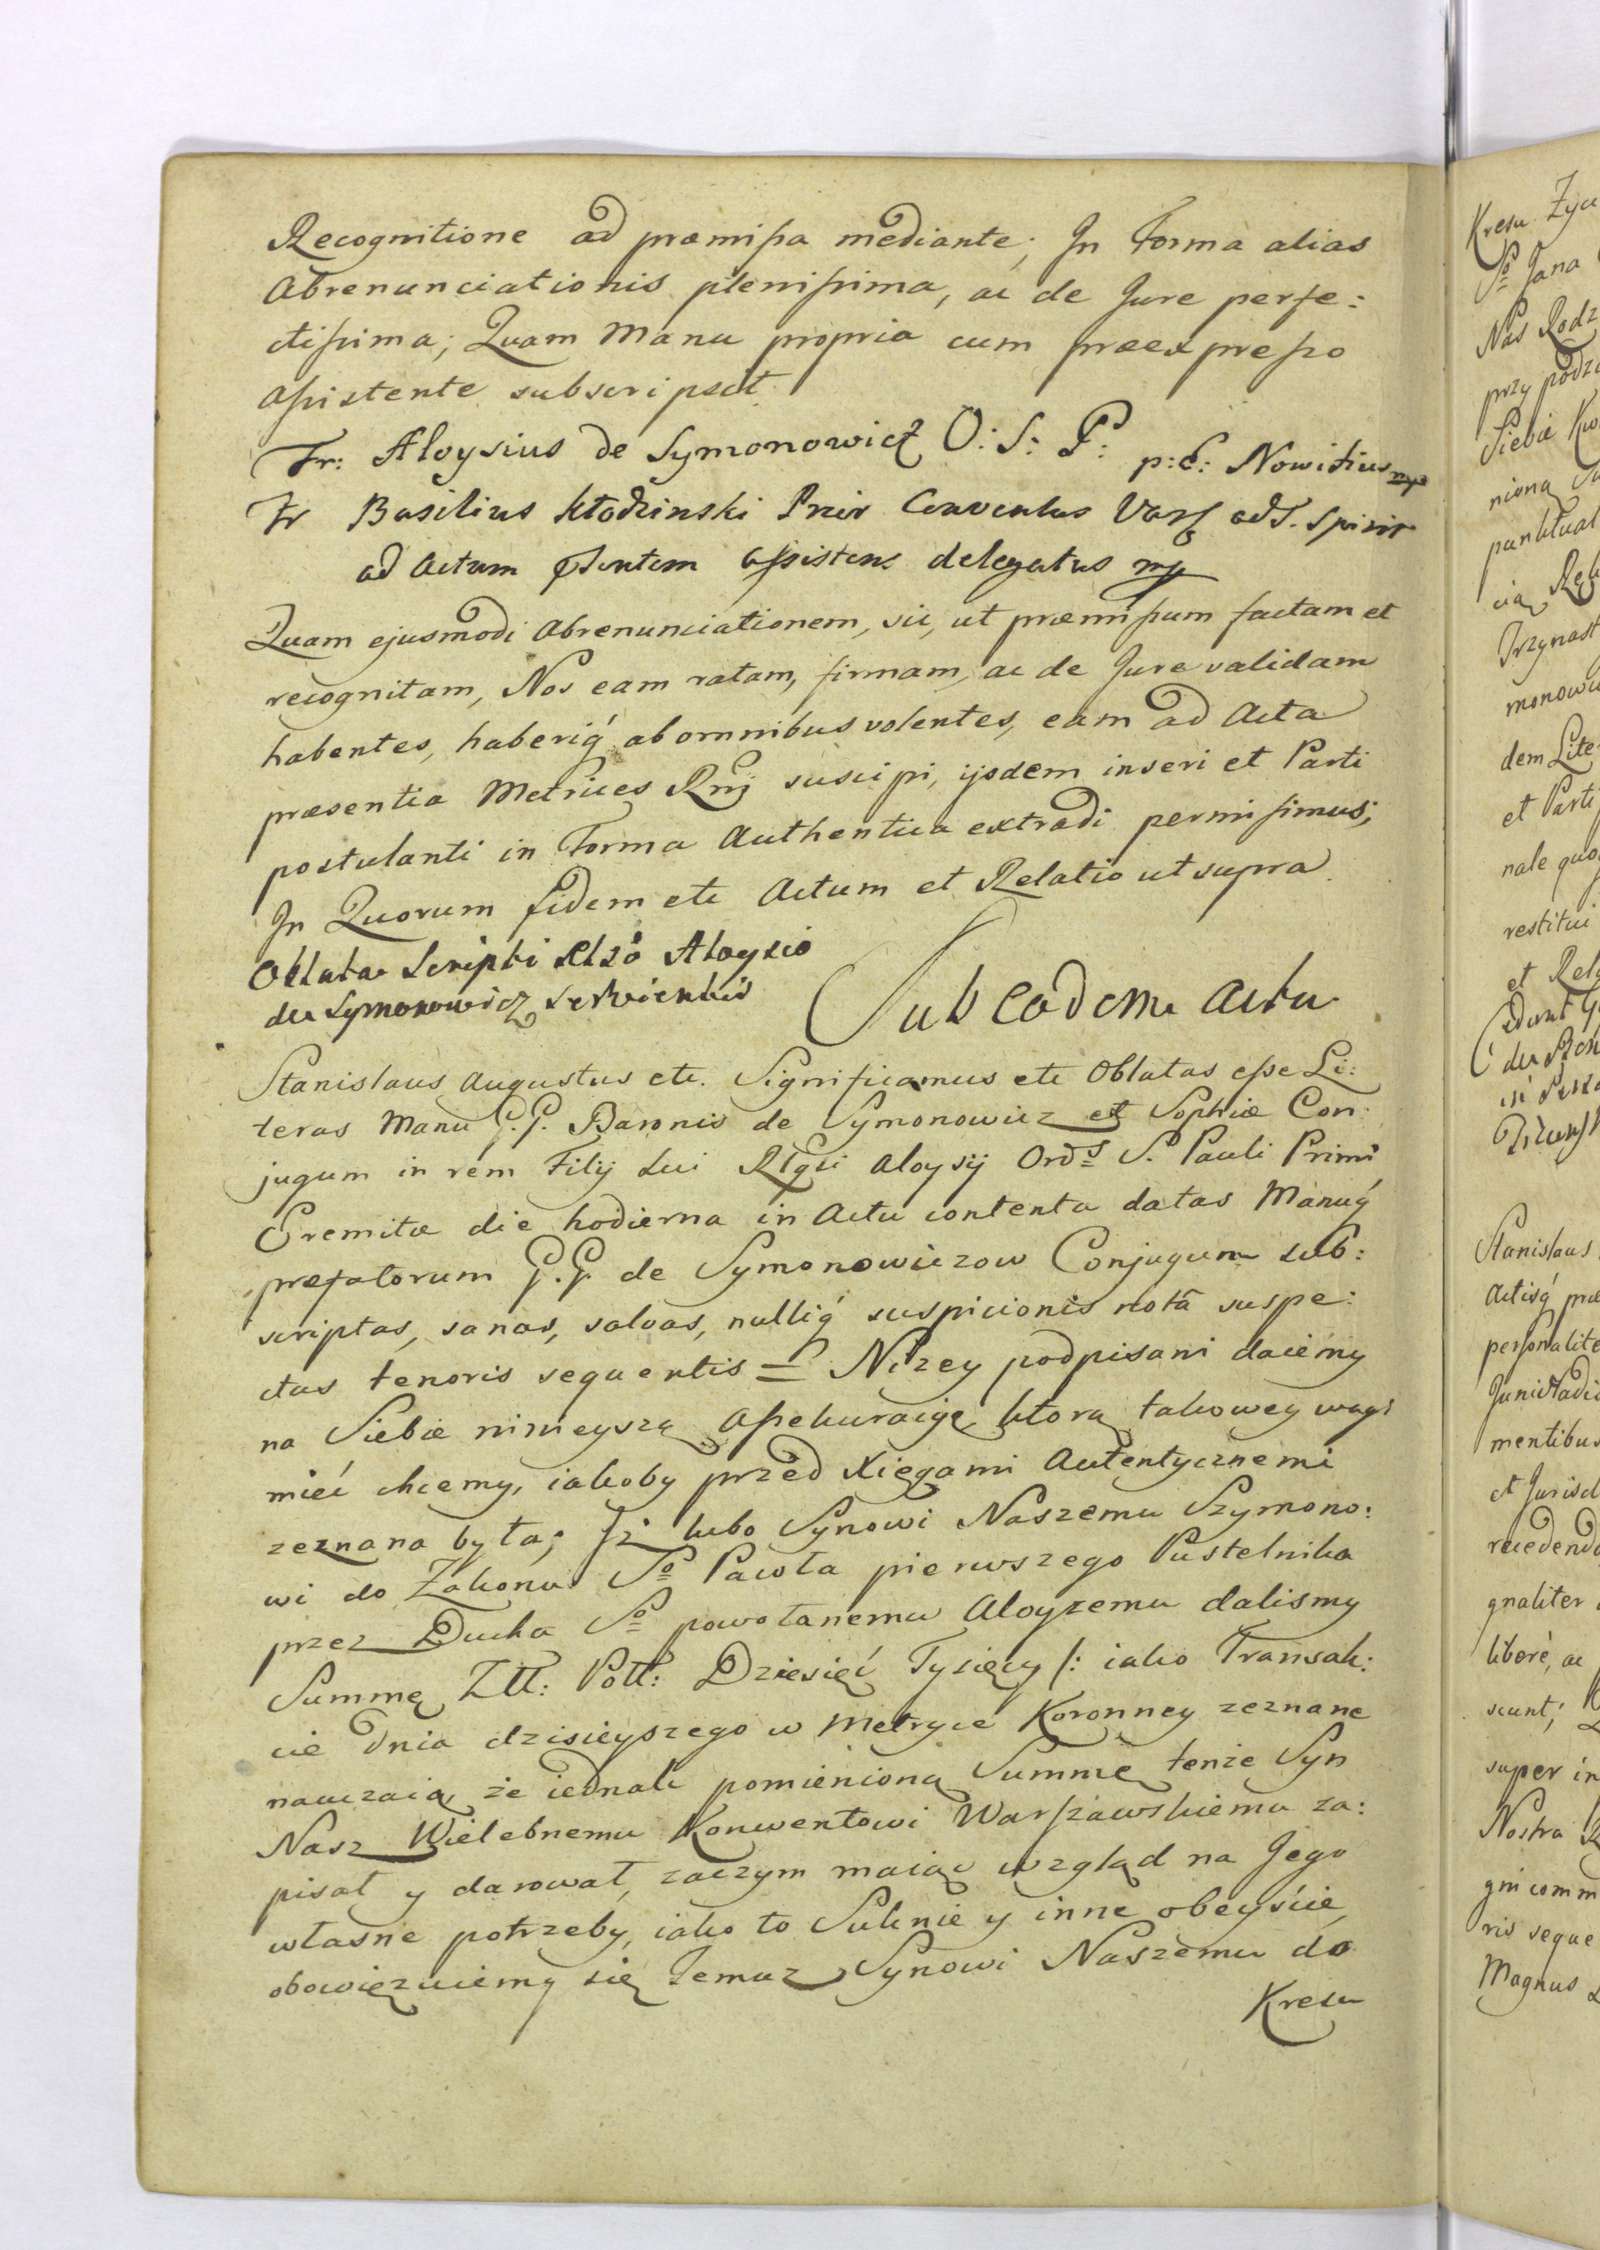 Recognitione ad præmissa mediante; In Forma alias
Abrenunciationis plenissima, ac de Jure perfe:
ctissima; Quam Manu propria cum præexpresso
Assistente subscripsit.
Fr: Aloysius de Symonowicz O: S: P: p: E: Nowitius mp
Fr Basilius Kłodzinski Prior Conventus Vars ad S. Spirit
ad Actum pñtem assistens delegatus mp
Quam ejusmodi Abrenunciationem, sic, ut præmissum factam et
recognitam, Nos eam ratam, firmam, ac de Jure validam
habentes, haberiq́ ab omnibus volentes, eam ad Acta
præsentia Metrices Rñj suscipi, ijsdem inseri et Parti
postulanti in Forma Authentica extradi permisimus;
In Quorum fidem etc Actum et Relatio ut supra.
Oblata Scripti Rlso Aloysio
de Symonowicz Servientis
Sub eodem Actu
Stanislaus Augustus etc. Significamus etc Oblatas esse Li:
teras Manu G. G. Baronis de Symonowicz et Sophiæ Con:
jugum in rem Filij Sui Rlgsi Aloysij Ordˢ S. Pauli Primi
Eremitæ die hodierna in Actu contenta datas Manuq́
præfatorum G. G. de Symonowiczow Conjugum sub:
scriptas, sanas, salvas, nulliq́ suspicionis notâ suspe:
ctas tenoris sequentis = Niżey podpisani daiemy
na Siebie ninieyszą Assekuraiyę ktora takowey wagi
mieć chcemy, iakoby przed Xięgami Autentycznemi
zeznana była; Iż lubo Synowi Naszemu Szymono:
wi do Zakonu Sº Pawła pierwszego Pustelnika
przez Ducha Sº powołanemu Aloyzemu dalismy
Summę Złł: Poll: Dziesięć Tysięcy /: iako Transak:
cie dnia dzisieyszego w Metryce Koronney zeznane
nauczaią że iednak pomienioną Summę tenże Syn
Nasz Wielebnemu Konwentowi Warszawskiemu za:
pisał y darował, zaczym maiąc wzgląd na Jego
własne potrzeby, iako to Suknie y inne obeyście,
obowięzuiemy się Temuz Synowi Naszemu do
Kresu
Kresu
Sº Jana
Nas Rodz
przy
Siebie
niona
punktual
Trzynast
monowi
dem Lite
et Parti
nale quo
restitui
et Rela
Stanislaus
Actisq́ præ
personalite
mentibus
et Jurisd
recedendo
gnaliter
liberè, ac
scunt;
super in
Nostra
gni comm
ris seque
Magnus